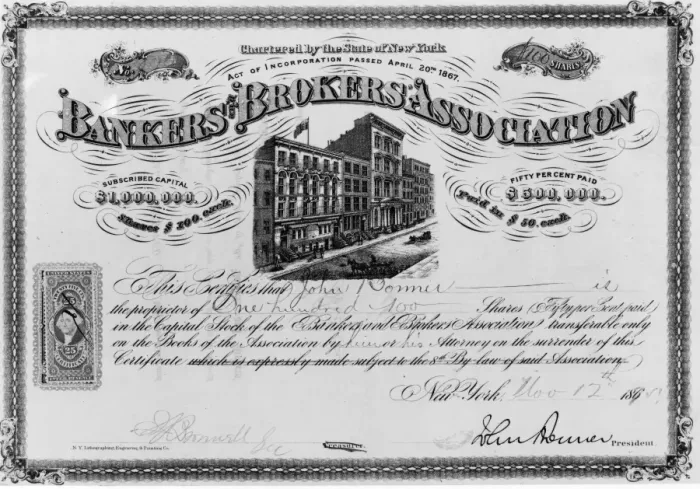 Chartered by the State of New York.
No.
100 SHARES
ACT OF INCORPORATION PASSED APRIL 20TH 1867.
BANKERS AND BROKERS ASSOCIATION
SUBSCRIBED CAPITAL
$1,000,000.
Shares $100. each.
FIFTY PER CENT PAID
$500,000.
Paid in $50. each.
This Certifies that John Bonner is
the proprietor of One hundred Shares (Fifty per Cent paid)
in the Capital Stock of the Bankers and Brokers Association transferable only
on the Books of the Association by him or his Attorney on the surrender of this
Certificate which is expressly made subject to the 8th By-law of said Association.
New York, Nov 12th 186
John Bonner President.
N.Y. Lithographing, Engraving & Printing Co.
UNITED STATES
25
25